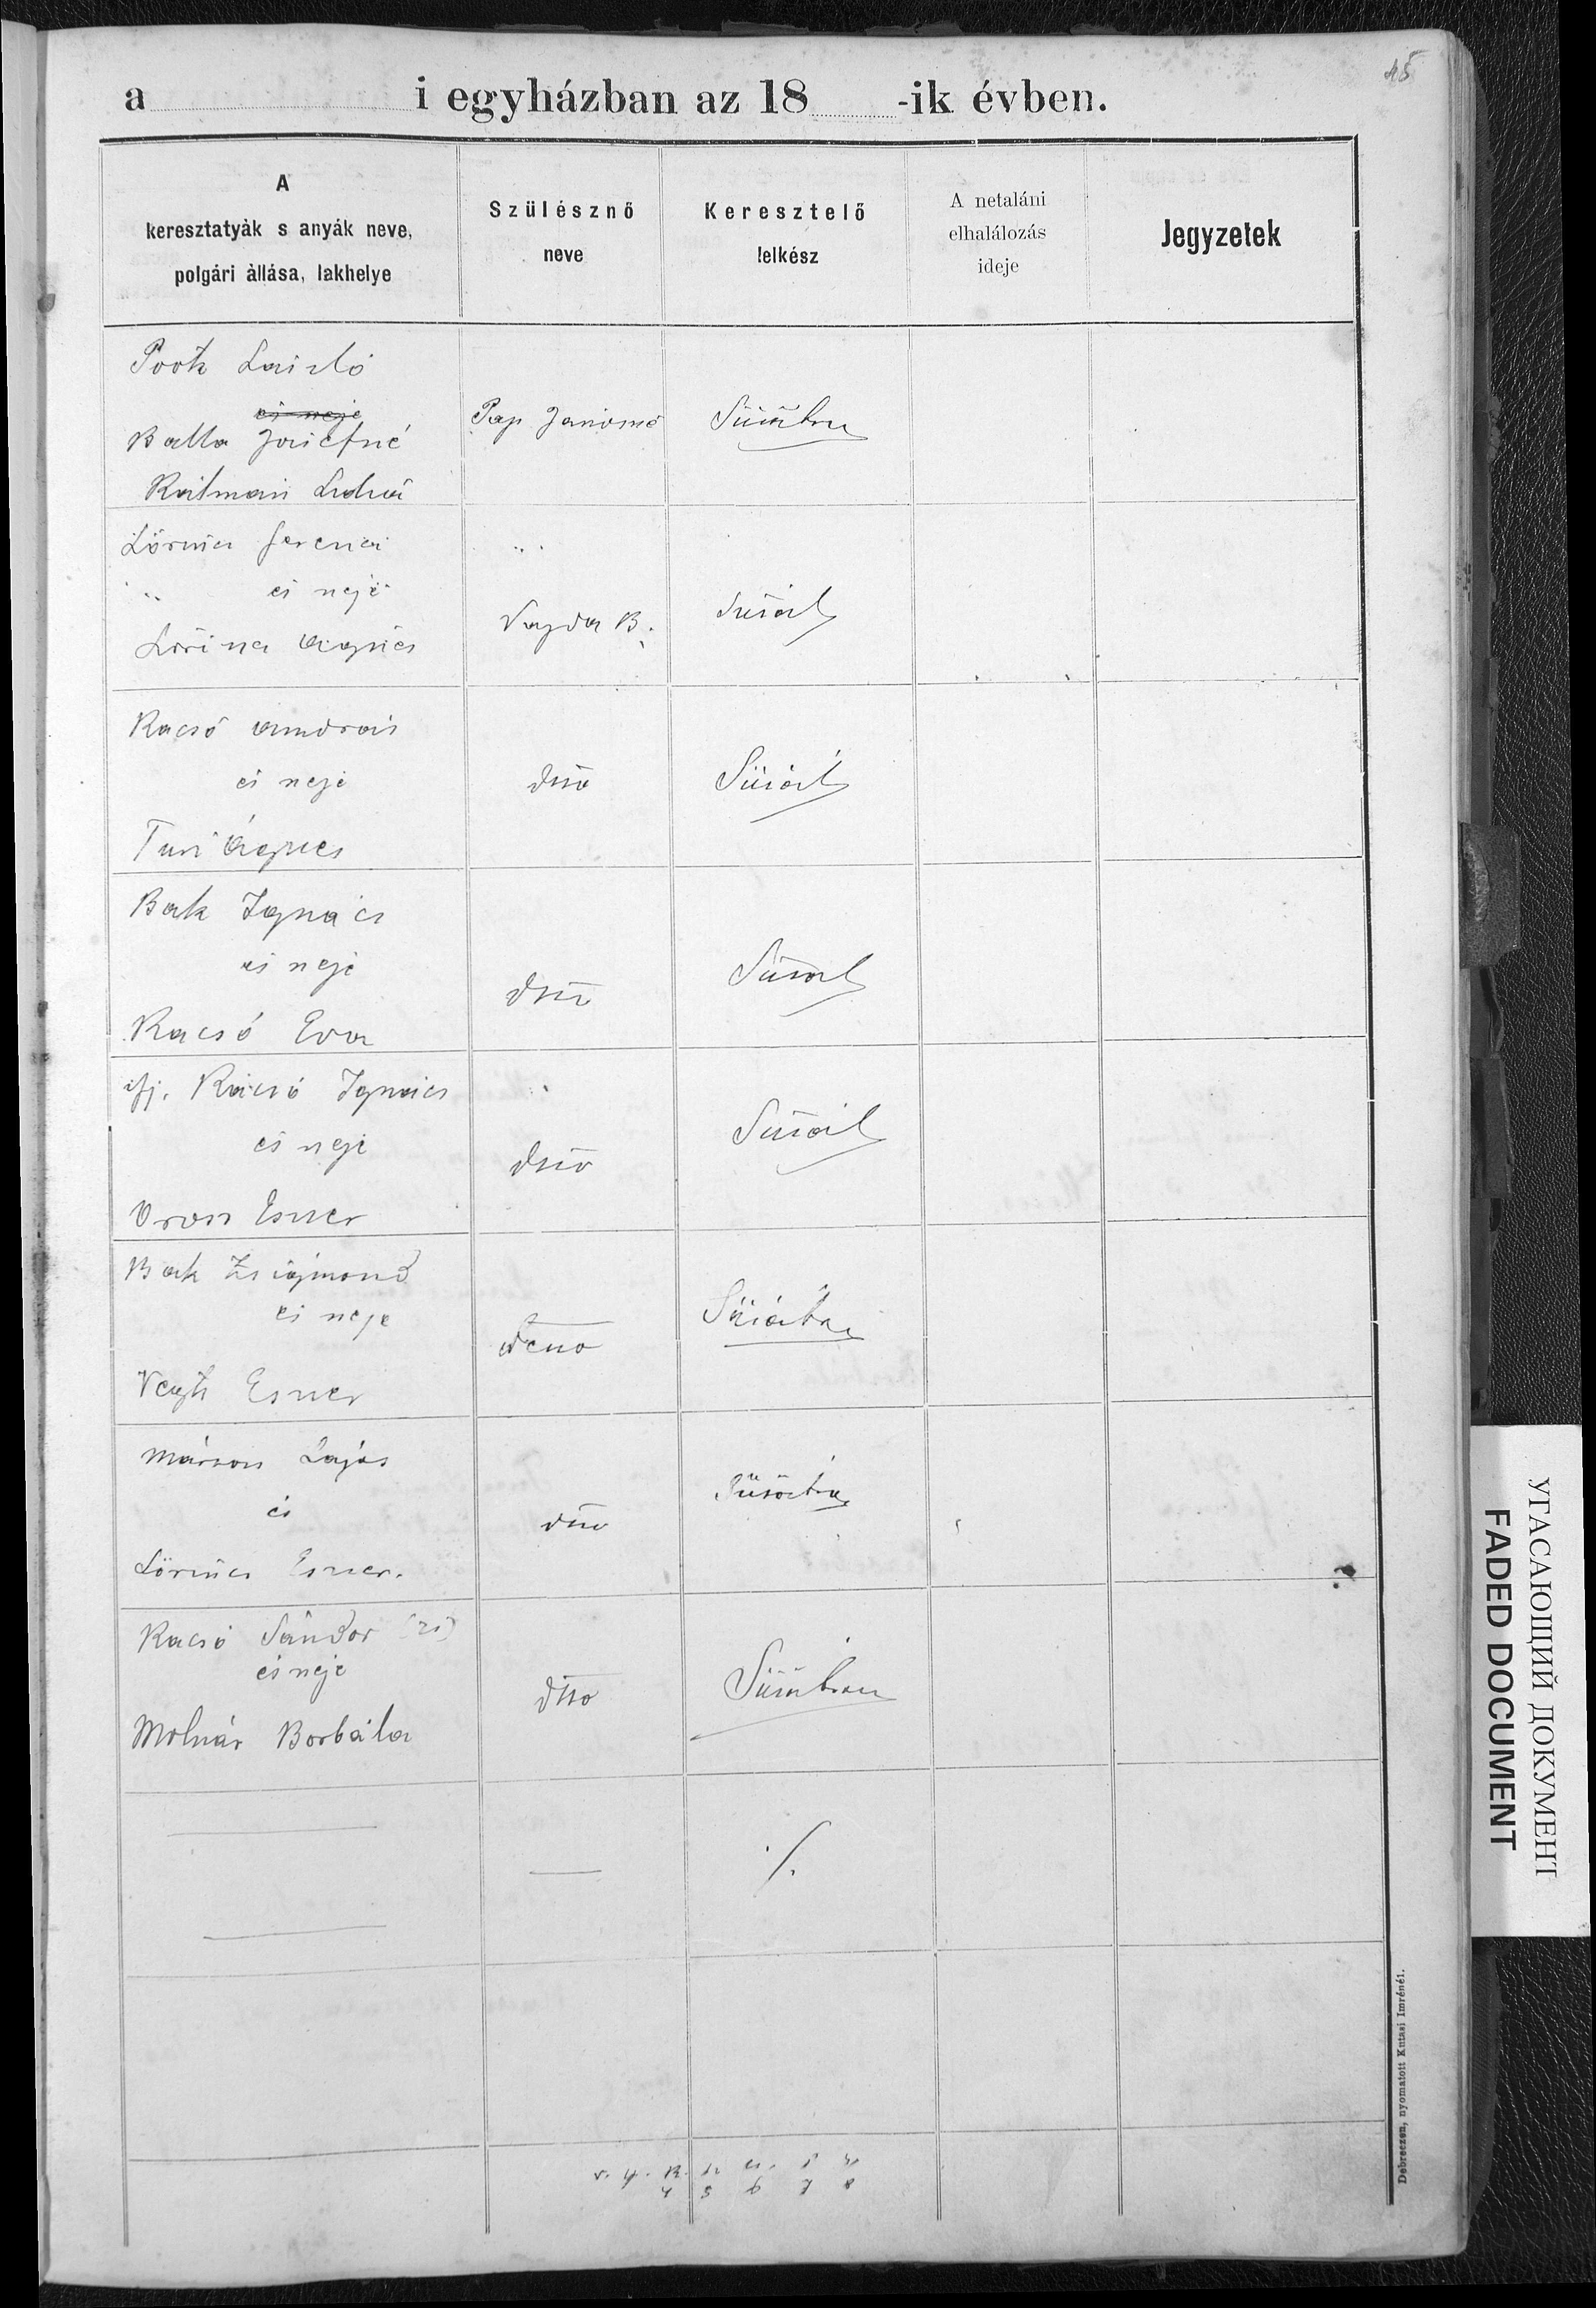 45
a i egyházban az 18 -ik évben.
A
keresztatyák s anyák neve,
polgári állása, lakhelye
Szülésznő
neve
Keresztelő
lelkész
A netaláni
elhalálozás
ideje
Jegyzetek
Pooth László
és neje
Balla Józsefné
Kálmán Lidia
Pap Jánosné
Lőrincz Ferencz
„ és neje
Lőrincz Ágnes
Vajda B.
Kacsó András
és neje
Turi Ágnes
dtto
Bak Ignácz
és neje
Kacsó Eva
dtto
ifj. Kacsó Ignácz
és neje
Oross Eszter
dtto
Bak Zsigmond
és neje
Vegh Eszter
detto
Márton Lajos
és
Lőrincz Eszter.
dtto
Kacsó Sándor
és neje
Molnár Borbála
dtto
./.
4 5 6 7 8
Debreczen, nyomatott Kutasi Imrénél.
УГАСАЮЩИЙ ДОКУМЕНТ
FADED DOCUMENT